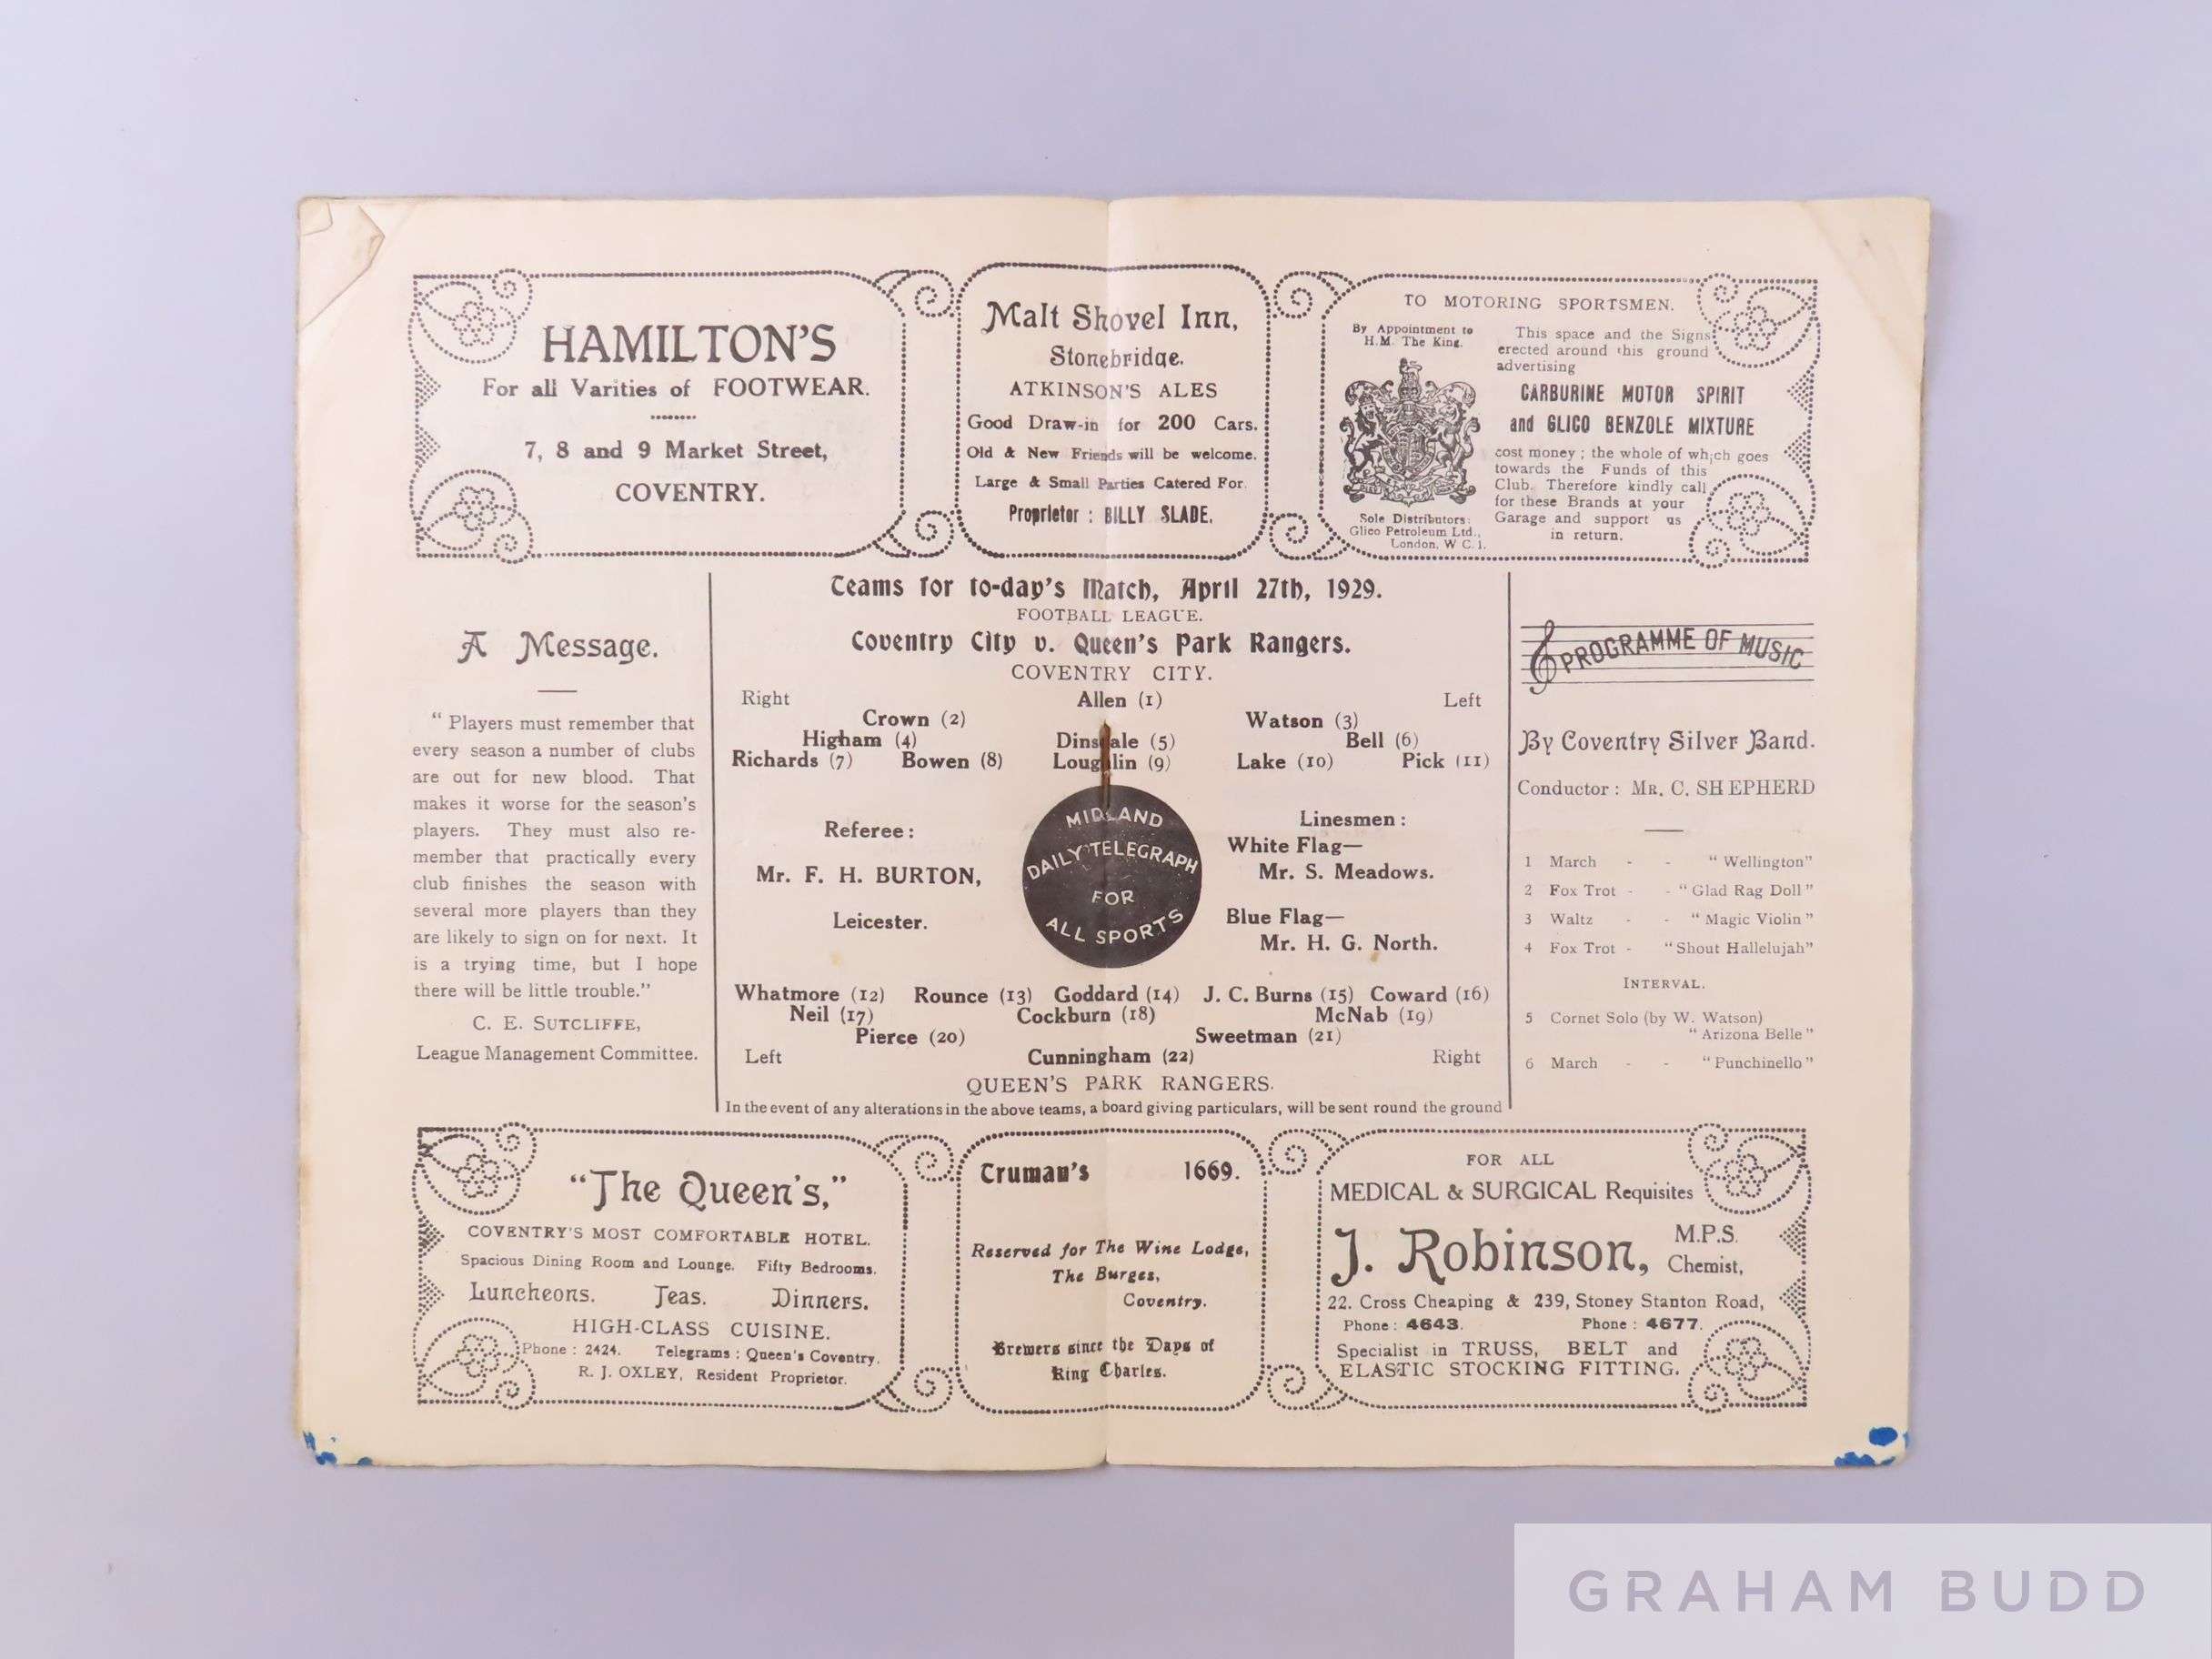 HAMILTON'S
For all Varities of FOOTWEAR.
7, 8 and 9 Market Street,
COVENTRY.
Malt Shovel Inn,
Stonebridge.
ATKINSON'S ALES
Good Draw-in for 200 Cars.
Old & New Friends will be welcome.
Large & Small Parties Catered For.
Proprietor : BILLY SLADE.
TO MOTORING SPORTSMEN.
By Appointment to
H.M. The King.
Sole Distributors:
Glico Petroleum Ltd.,
London, W C.1.
This space and the Signs
erected around this ground
advertising
CARBURINE MOTOR SPIRIT
and GLICO BENZOLE MIXTURE
cost money ; the whole of which goes
towards the Funds of this
Club. Therefore kindly call
for these Brands at your
Garage and support us
in return.
A Message.
“ Players must remember that
every season a number of clubs
are out for new blood. That
makes it worse for the season's
players. They must also re-
member that practically every
club finishes the season with
several more players than they
are likely to sign on for next. It
is a trying time, but I hope
there will be little trouble.”
C. E. SUTCLIFFE,
League Management Committee.
Teams for to-day's Match, April 27th, 1929.
FOOTBALL LEAGUE.
Coventry City v. Queen's Park Rangers.
COVENTRY CITY.
Right Allen (1) Left
Crown (2) Watson (3)
Higham (4) Dinsdale (5) Bell (6)
Richards (7) Bowen (8) Loughlin (9) Lake (10) Pick (11)
Referee :
Mr. F. H. BURTON,
Leicester.
MIDLAND
DAILY TELEGRAPH
FOR
ALL SPORTS
Linesmen :
White Flag—
Mr. S. Meadows.
Blue Flag—
Mr. H. G. North.
Whatmore (12) Rounce (13) Goddard (14) J. C. Burns (15) Coward (16)
Neil (17) Cockburn (18) McNab (19)
Pierce (20) Sweetman (21)
Left Cunningham (22) Right
QUEEN'S PARK RANGERS.
In the event of any alterations in the above teams, a board giving particulars, will be sent round the ground
PROGRAMME OF MUSIC
By Coventry Silver Band.
Conductor : MR. C. SHEPHERD
1 March - - “ Wellington”
2 Fox Trot - - “ Glad Rag Doll ”
3 Waltz - - “ Magic Violin ”
4 Fox Trot - “Shout Hallelujah”
INTERVAL.
5 Cornet Solo (by W. Watson)
“ Arizona Belle ”
6 March - - “ Punchinello ”
“The Queen's,”
COVENTRY'S MOST COMFORTABLE HOTEL.
Spacious Dining Room and Lounge. Fifty Bedrooms.
Luncheons. Teas. Dinners.
HIGH-CLASS CUISINE.
Phone : 2424. Telegrams : Queen's Coventry.
R. J. OXLEY, Resident Proprietor.
Truman's 1669.
Reserved for The Wine Lodge,
The Burges,
Coventry.
Brewers since the Days of
King Charles.
FOR ALL
MEDICAL & SURGICAL Requisites
J. Robinson, M.P.S.
Chemist,
22. Cross Cheaping & 239, Stoney Stanton Road,
Phone : 4643. Phone : 4677.
Specialist in TRUSS, BELT and
ELASTIC STOCKING FITTING.
GRAHAM BUDD